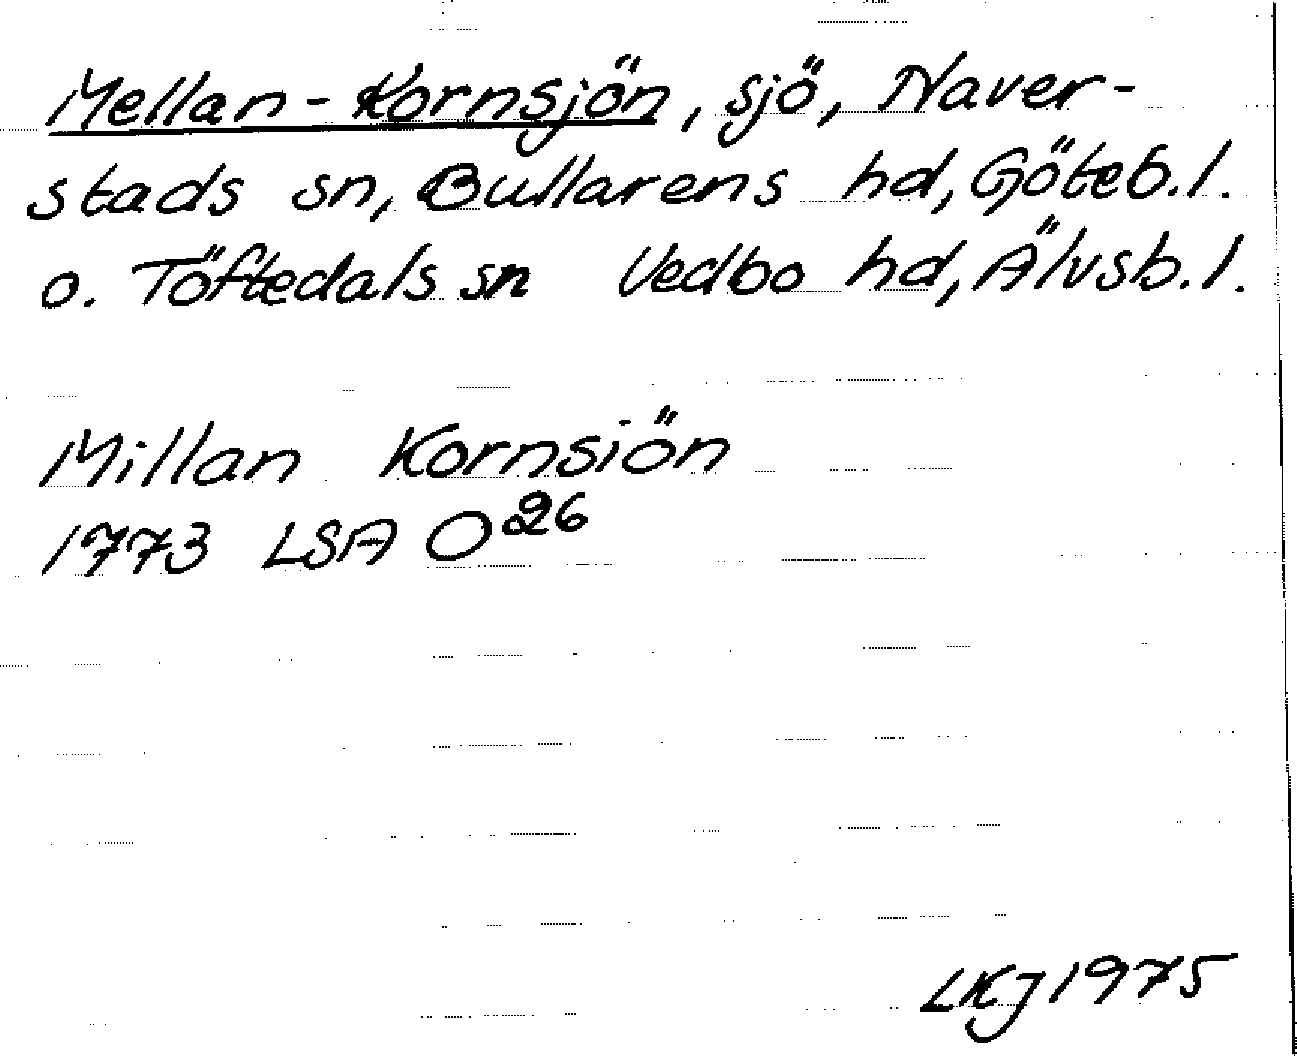 Mellan-Kornsjön, sjö, Naver-
stads sn, Bullarens hd, Göteb.l.
o. Töftedals sn Vedbo hd, Älvsb.l.
Millan Kornsiön
1773 LSA O²⁶
LKJ 1975